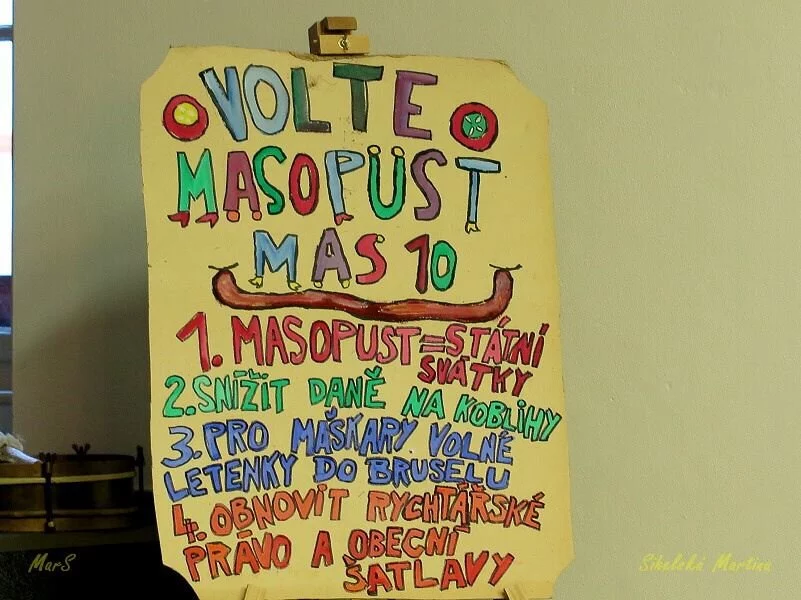 VOLTE
MASOPÜST
MAS 10
1. MASOPUST = STÁTNÍ
SVÁTKY
2. SNÍŽIT DANĚ NA KOBLIHY
3. PRO MAŠKARY VOLNÉ
LETENKY DO BRUSELU
4. OBNOVIT RYCHTÁŘSKÉ
PRÁVO A OBECNÍ
ŠATLAVY
MarS
Sihelská Martina